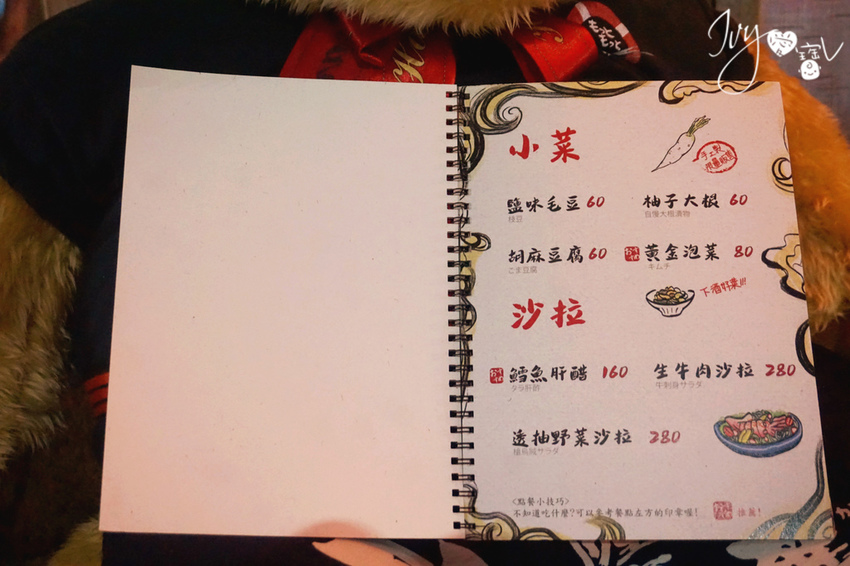 Ivy愛寶L
小菜
鹽味毛豆 60
枝豆
柚子大根 60
自慢大根漬物
胡麻豆腐 60
ごま豆腐
黃金泡菜 80
キムチ
沙拉
下酒好菜!!!
鱈魚肝醋 160
タラ肝酢
生牛肉沙拉 280
牛刺身サラダ
透抽野菜沙拉 280
<點餐小技巧>
不知道吃什麼?可以參考餐點左方的印章喔!
推薦!